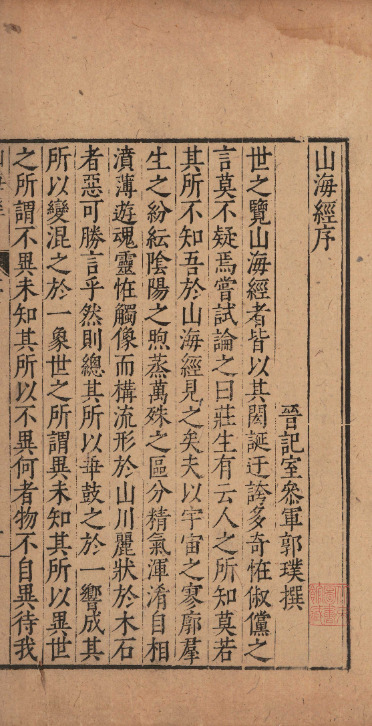 山海經序
晉記室叅軍郭璞撰
世之覽山海經者皆以其閎誕迂誇多奇恠俶儻之
言莫不疑焉嘗試論之曰莊生有云人之所知莫若
其所不知吾於山海經見之矣夫以宇宙之寥廓羣
生之紛紜陰陽之煦蒸萬殊之區分精氣渾淆自相
濆薄遊魂靈恠觸像而構流形於山川麗狀於木石
者惡可勝言乎然則總其所以乖鼓之於一響成其
所以變混之於一象世之所謂異未知其所以異世
之所謂不異未知其所以不異何者物不自異待我